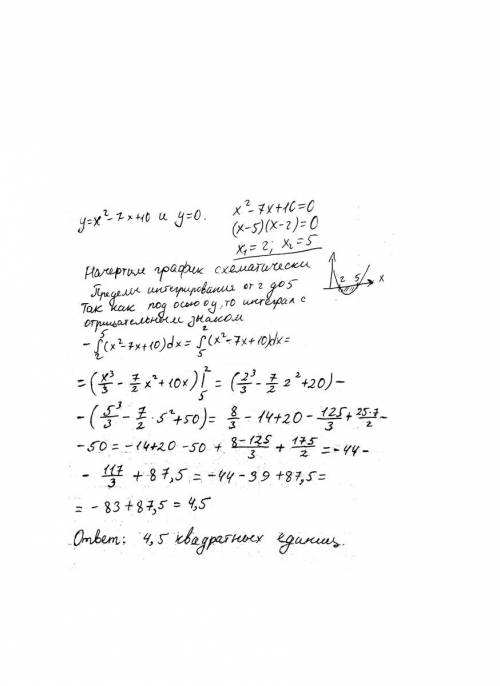 y=x²-7x+10 и y=0.
x²-7x+10=0
(x-5)(x-2)=0
x₁=2; x₂=5
Начертим график схематически
Пределы интегрирование от 2 до 5
Так как под осью оу, то интеграл с
отрицательным знаком
2 5 x
-∫₂⁵(x²-7x+10)dx=∫₅²(x²-7x+10)dx=
=(x³/3-7/2x²+10x)|₅²=(2³/3-7/2 2²+20)-
-(5³/3-7/2·5²+50)=8/3-14+20-125/3+25·7/2-
-50=-14+20-50+8-125/3+175/2=-44-
-117/3+87,5=-44-39+87,5=
=-83+87,5=4,5
Ответ: 4,5 квадратных единиц.